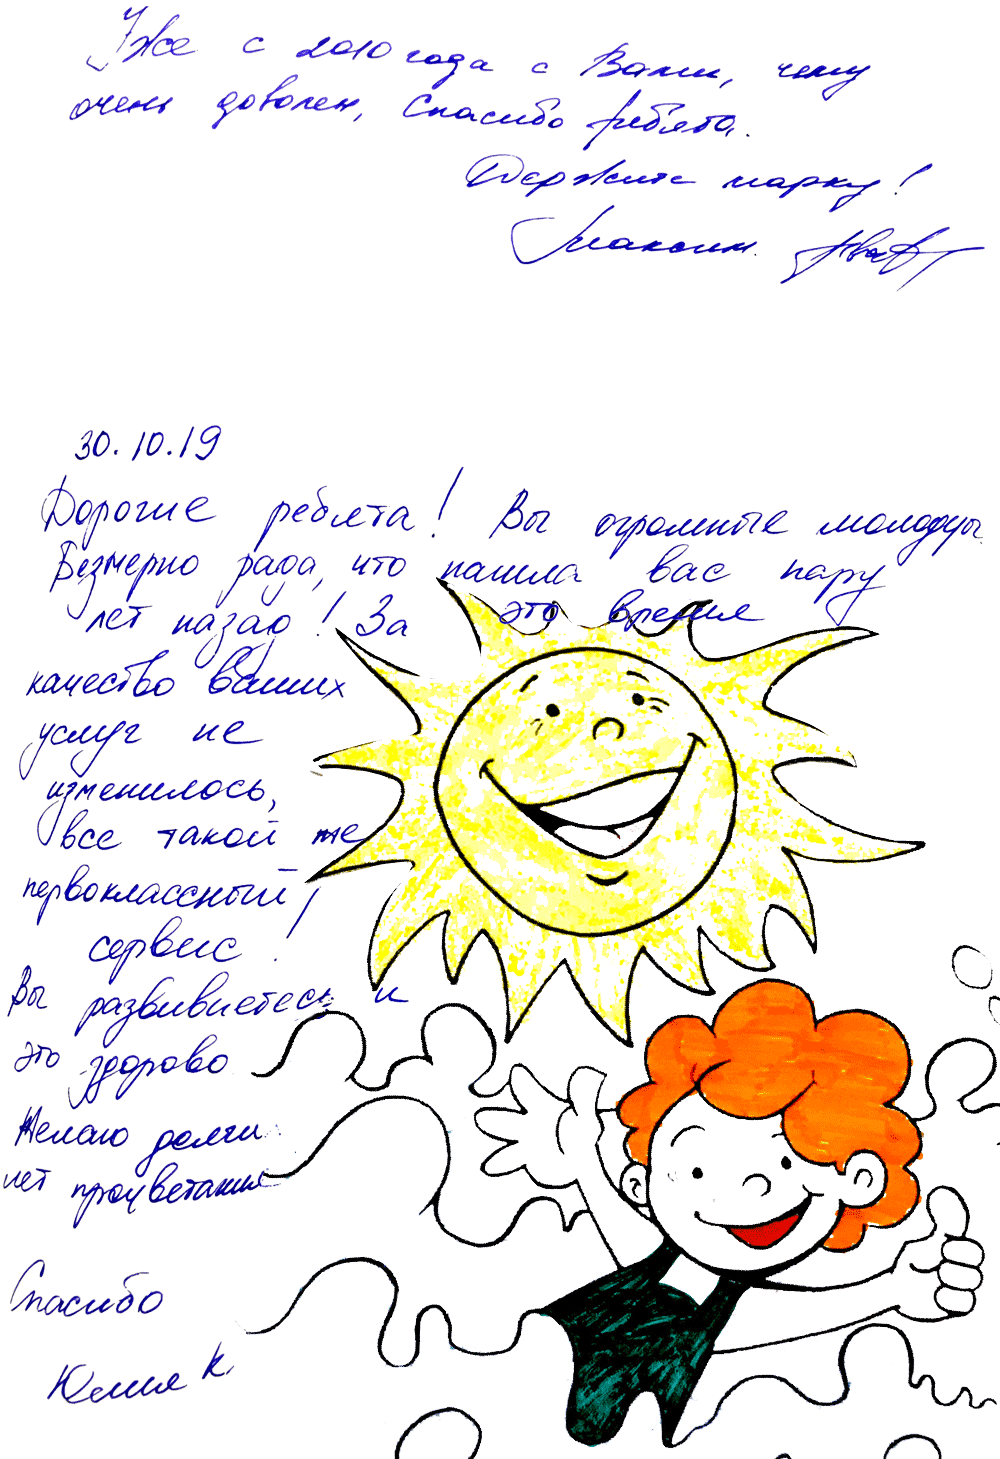 Уже с 2010 года с Вами, чему
очень доволен, Спасибо ребята.
Держите марку!
Максим.
30.10.19
Дорогие ребята! Вы огромные молодцы
Безмерно рада, что нашла вас пару
лет назад! За это время
качество ваших
услуг не
изменилось,
все такой же
первоклассный
сервис!
Вы развиваетесь и
это здорово
Желаю долги
лет процветания
Спасибо
Юлия К.